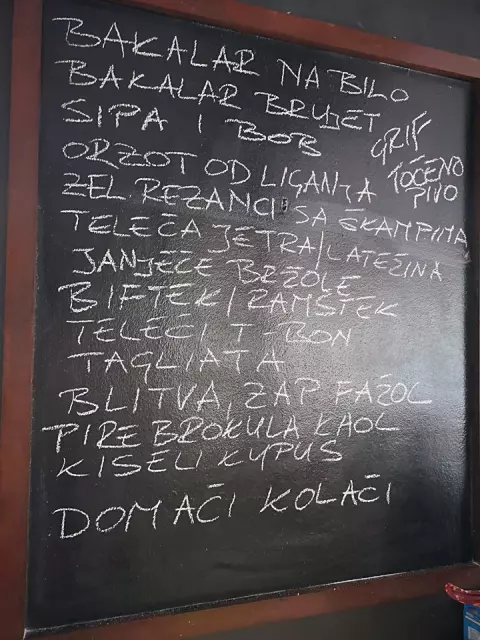 BAKALAR NA BILO
BAKALAR BRUJET
SIPA I BOB
GRIF
TOČENO
PIVO
ORZOT OD LIGANJA
ZEL. REZANCI SA ŠKAMPIMA
TELEČA JETRA/LATEŽINA
JANJEČE BRŽOLE
BIFTEK/RAMSTEK
TELEČI T-BON
TAGLIATA
BLITVA, ZAP FAŽOL
PIRE BROKULA KAOL
KISELI KUPUS
DOMAČI KOLAČI